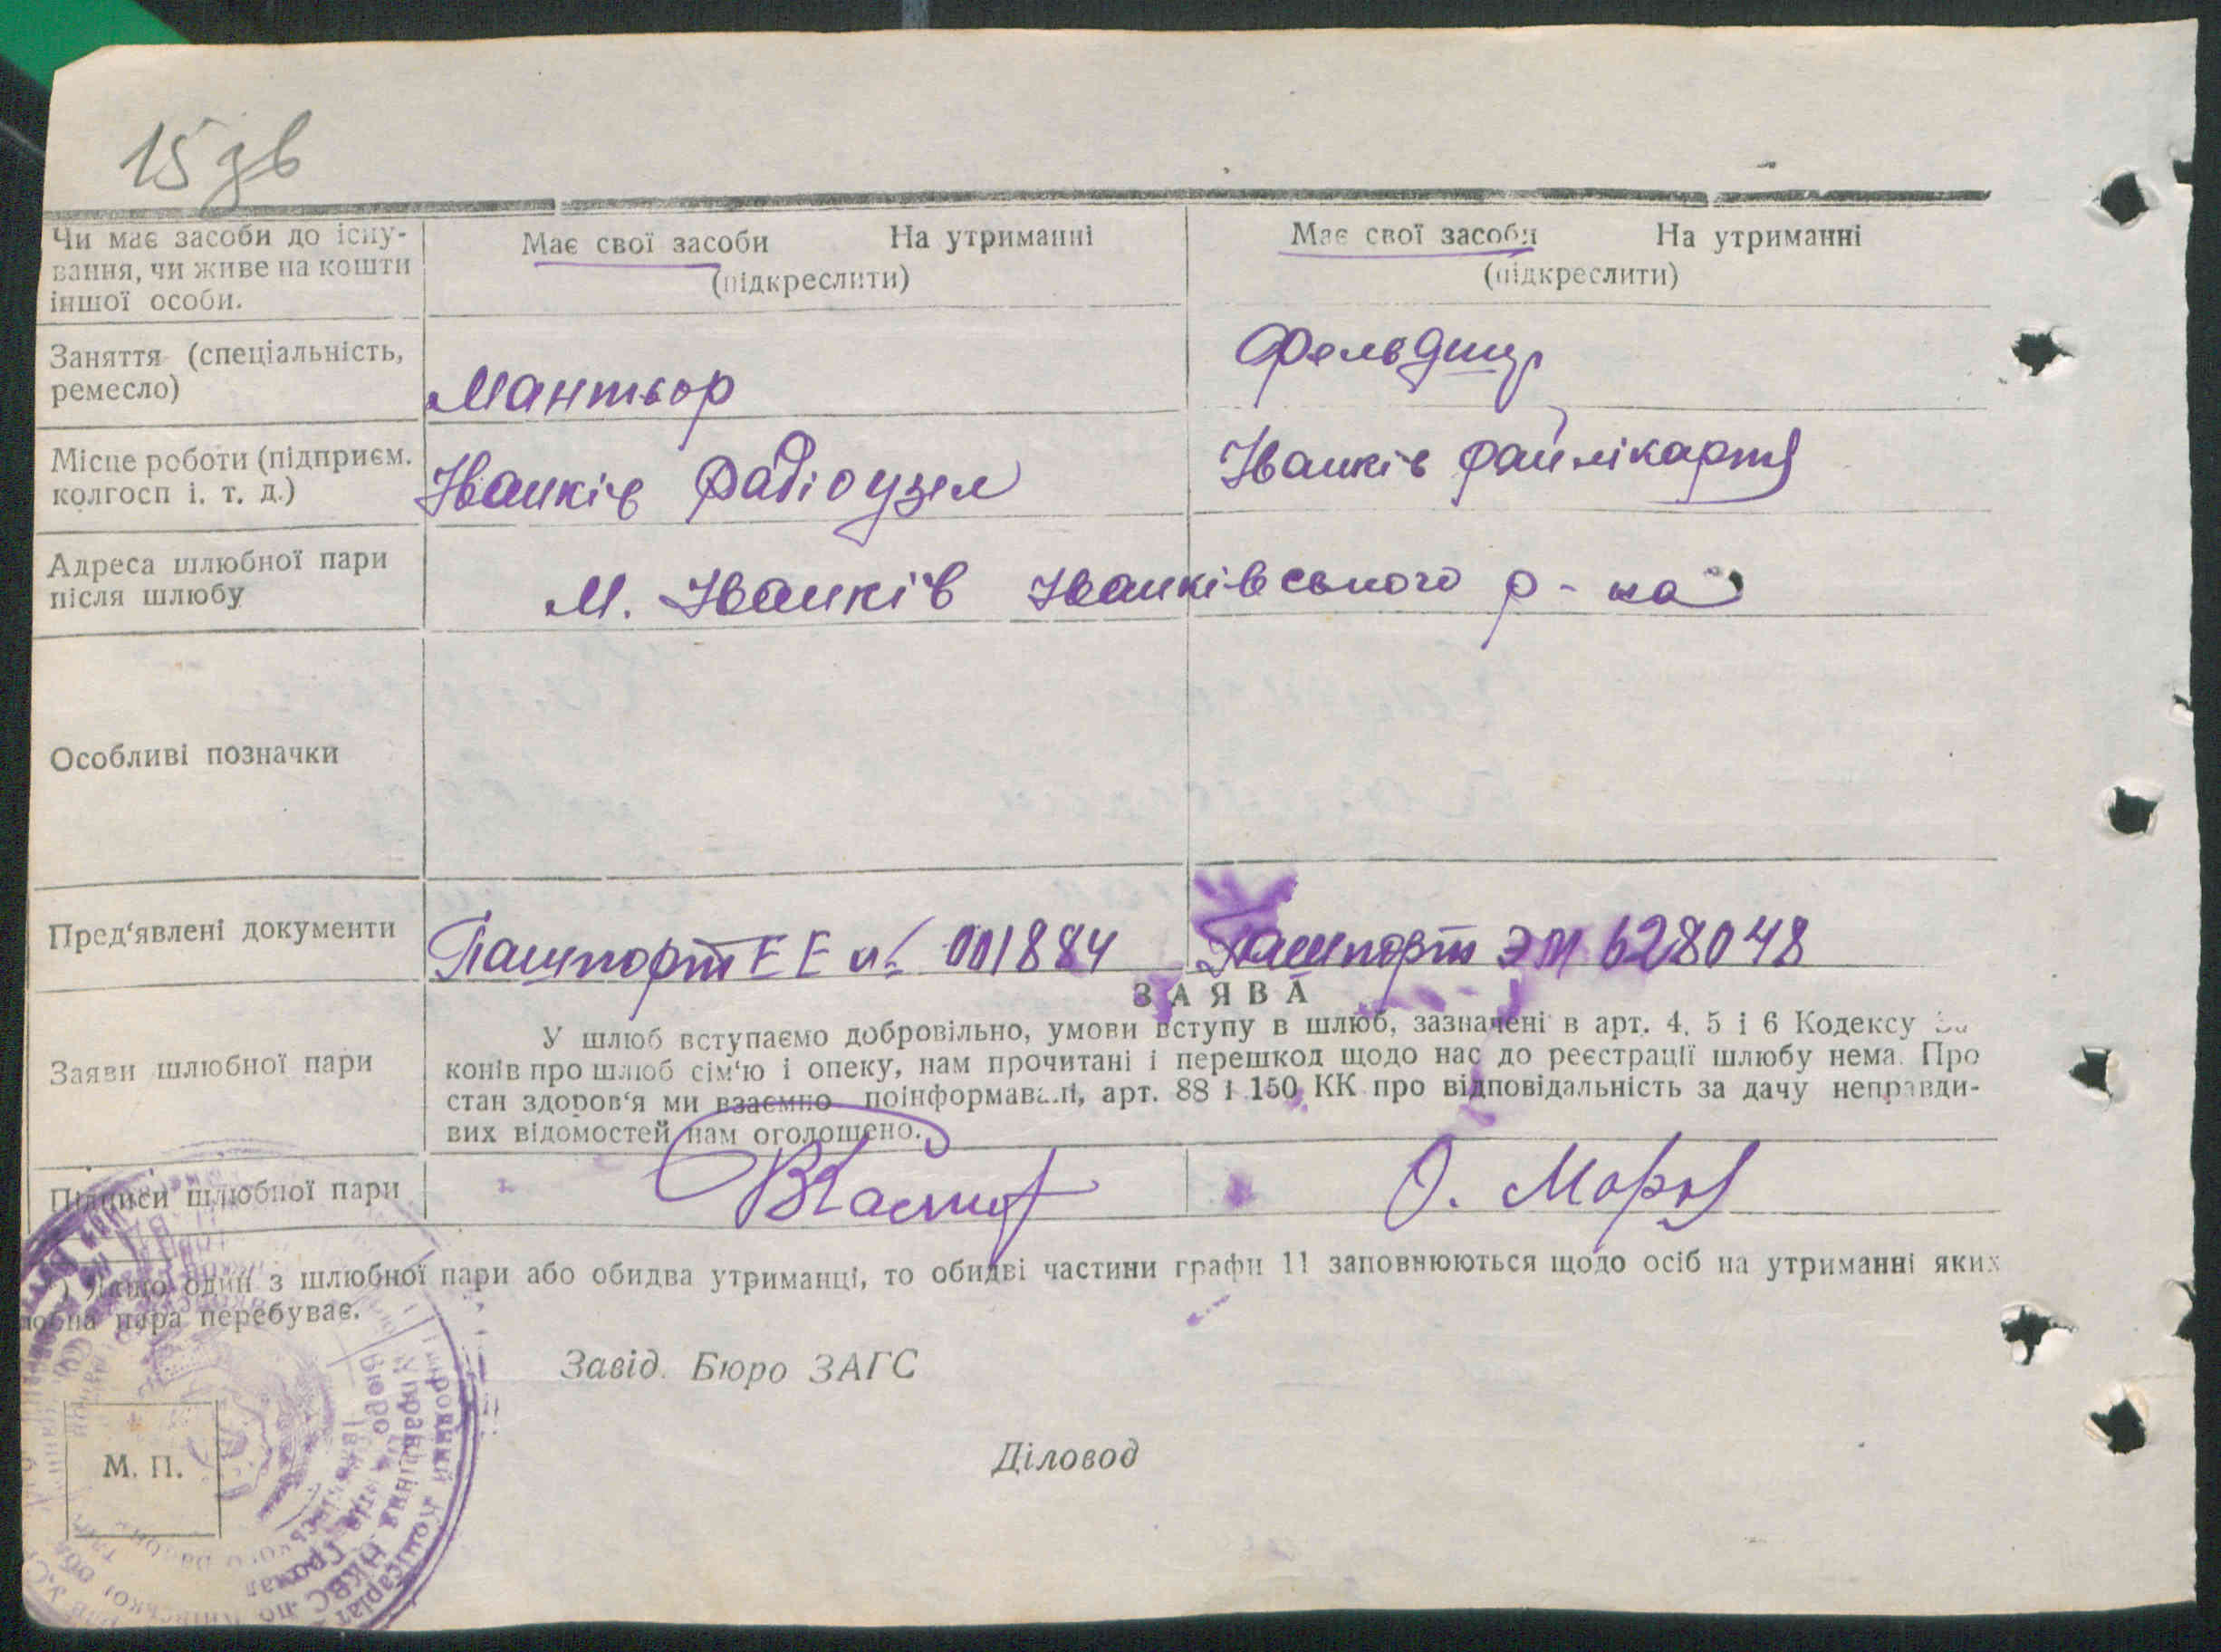 15 зв
Чи має засоби до існу-
вання, чи живе на кошти
іншої особи.
Має свої засоби На утриманні
(підкреслити)
Має свої засоби На утриманні
(підкреслити)
Заняття (спеціальність,
ремесло)
Мантьор
Фельдшер
Місце роботи (підприєм.
колгосп і. т. д.)
Іванків Радіоузел
Іванків райлікарня
Адреса шлюбної пари
після шлюбу
М. Іванків Іванківського р-на
Особливі позначки
Пред'явлені документи
Пашпорт ЕЕ № 001884
Пашпорт ЭМ 628048
ЗАЯВА
Заяви шлюбної пари
У шлюб вступаємо добровільно, умови вступу в шлюб, зазначені в арт. 4, 5 і 6 Кодексу За
конів про шлюб сім'ю і опеку, нам прочитані і перешкод щодо нас до реєстрації шлюбу нема. Про
стан здоров'я ми взаємно поінформавалі, арт. 88 і 150 КК про відповідальність за дачу неправди-
вих відомостей нам оголошено.
Підписи шлюбної пари
О. Мороз
) Якщо один з шлюбної пари або обидва утриманці, то обидві частини графи 11 заповнюються щодо осіб на утриманні яких
шлюбна пара перебуває.
Завід. Бюро ЗАГС
Діловод
М. П.
Народний Комісаріат
Управління НКВС
по Київській
Бюро
Іванківського району